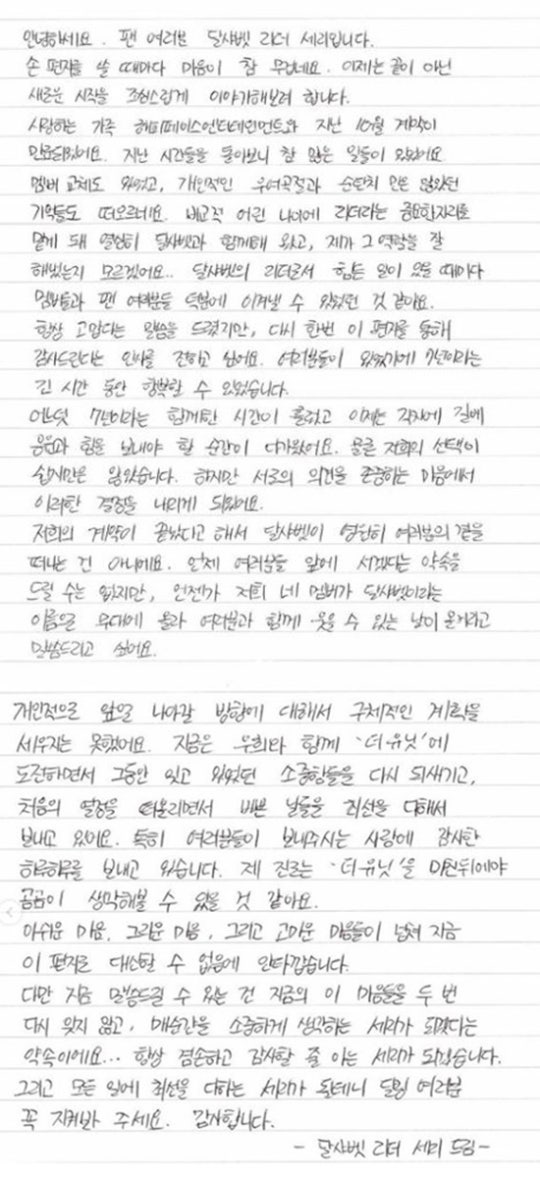 안녕하세요. 팬 여러분 달샤벳 리더 세리입니다.
손 편지를 쓸 때마다 마음이 참 무겁네요. 이제는 끝이 아닌
새로운 시작을 조심스럽게 이야기해보려 합니다.
사랑하는 가족 해피페이스엔터테인먼트와 지난 10월 계약이
만료되었어요. 지난 시간들을 돌아보니 참 많은 일들이 있었어요
멤버 교체도 있었고, 개인적인 우여곡절과 순탄치 만은 않았던
기억들도 떠오르네요. 비교적 어린 나이에 리더라는 중요한자리를
맡게 돼 열심히 달샤벳과 함께해 왔고, 제가 그 역할을 잘
해냈는지 모르겠어요.. 달샤벳의 리더로서 힘든 일이 있을 때마다
멤버들과 팬 여러분들 덕분에 이겨낼 수 있었던 것 같아요.
항상 고맙다는 말씀을 드렸지만, 다시 한번 이 편지를 통해
감사드린다는 인사를 전하고 싶어요. 여러분들이 있었기에 7년이라는
긴 시간 동안 행복할 수 있었습니다.
어느덧 7년이라는 함께한 시간이 흘렀고 이제는 각자에 길에
응원과 힘을 보내야 할 순간이 다가왔어요. 물론 저희의 선택이
쉽지만은 않았습니다. 하지만 서로의 의견을 존중하는 마음에서
이러한 결정을 내리게 되었어요.
저희의 계약이 끝났다고 해서 달샤벳이 영원히 여러분의 곁을
떠나는 건 아니에요. 언제 여러분들 앞에 서겠다는 약속을
드릴 수는 없지만, 언젠가 저희 네 멤버가 달샤벳이라는
이름으로 무대에 올라 여러분과 함께 웃을 수 있는 날이 올거라고
말씀드리고 싶어요.
개인적으로 앞으로 나아갈 방향에 대해서 구체적인 계획을
세우지는 못했어요. 지금은 우희와 함께 '더유닛'에
도전하면서 그동안 잊고 있었던 소중함들을 다시 되새기고,
처음의 열정을 떠올리면서 바쁜 날들을 최선을 다해서
보내고 있어요. 특히 여러분들이 보내주시는 사랑에 감사한
하루하루를 보내고 있습니다. 제 진로는 '더유닛'을 마친뒤에야
곰곰이 생각해볼 수 있을 것 같아요.
아쉬운 마음, 그리운 마음, 그리고 고마운 마음들이 넘쳐 지금
이 편지로 대신할 수 없음에 안타깝습니다.
다만 지금 말씀드릴 수 있는 건 지금의 이 마음들을 두 번
다시 잊지 않고, 매순간을 소중하게 생각하는 세리가 되겠다는
약속이에요... 항상 겸손하고 감사할 줄 아는 세리가 되겠습니다.
그리고 모든 일에 최선을 다하는 세리가 될테니 달링 여러분
꼭 지켜봐 주세요. 감사합니다.
- 달샤벳 리더 세리 드림 -